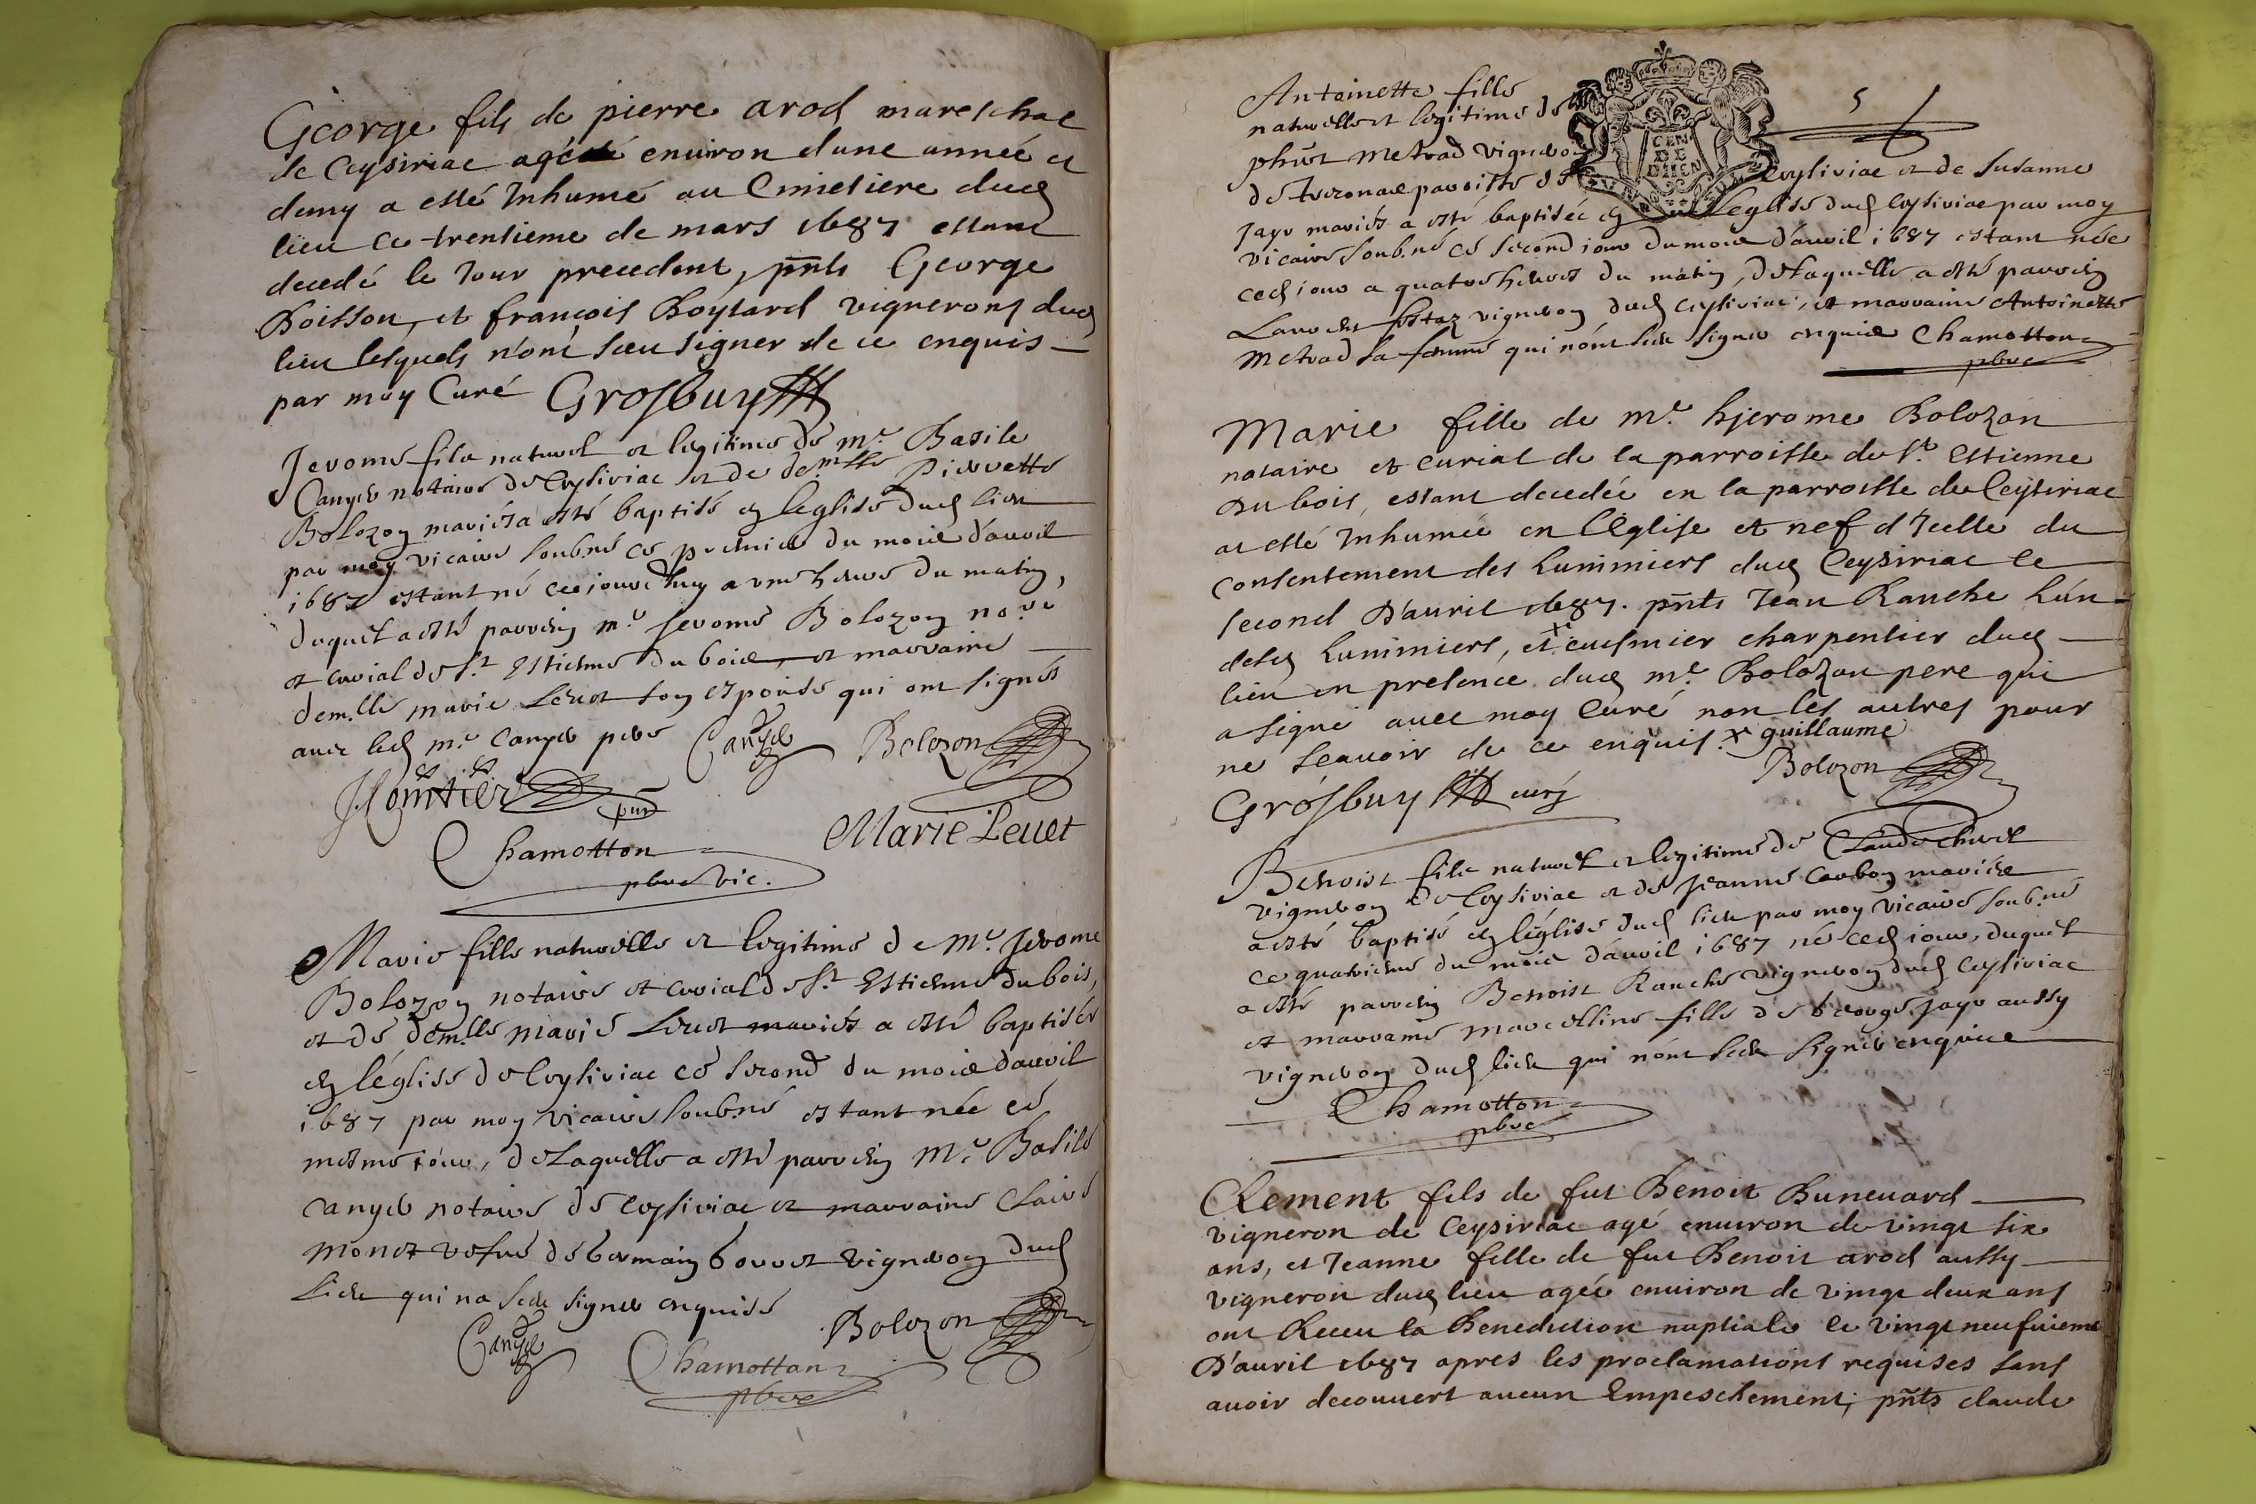 George fils de pierre arod mareschal
de Ceysiriac agé environ d'une année et
demy a esté Inhumé au Cimetiere dud
lieu ce trentieme de mars 1687 estant
decedé le Jour precedent, pnts George
Boisson, et françois Boytard vignerons dud
lieu lesquels n'ont sceu signer de ce enquis
par moy Curé Grosbuy
Jerome fils naturel et legitime de me. Basile
Canyer notaire de Ceysiriac et de demlle Pierrette
Bolozon mariés a esté baptisé en l'eglise dud lieu
par moy vicaire soub.né ce premier du mois d'avril
1687 estant né ce jourdhuy a une heure du matin,
duquel a esté parrein me. Jerome Bolozon no.re
et curial de st Estienne du bois, et marraine
dem.lle marie Levet son espouse qui ont signés
avec led me. Canyer pere Canyer Bolozon
Chamotton Marie Levet
pbre vic.
Marie fille naturelle et legitime de me Jerome
Bolozon notaire et curial de st Estienne du bois,
et de dem.lle marie Levet mariés a esté baptisée
en l'église de Ceysiriac ce second du mois d'avril
1687 par moy vicaire soub.né estant née ce
mesme jour, de laquelle a esté parrein Me Basile
Canyer notaire de Ceysiriac et marraine Claire
monet vefve de Germain Govet vigneron dud
lieu qui na sceu signer enquise
Canyer Chamotton Bolozon
pbre
5
Antoinette fille
naturelle et legitime de
phért metrad vigneron
de paroisse de Ceysiriac et de Susanne
Jayr mariés a esté baptisée en l'eglise dud Ceysiriac par moy
vicaire soub.né ce second jour du mois d'avril 1687 estant née
ced jour a quatre heures du matin, de laquelle a esté parrein
vigneron dud Ceysiriac, et marraine Antoinette
metrad sa femme qui n'ont sceu signer enquis Chamotton
pbre
Marie fille de me. hjerome Bolozon
notaire et curial de la parroisse de St. Estienne
du bois, estant decedée en la parroisse de Ceysiriac
at esté Inhumée en l'Eglise et nef d'Icelle du
consentement des Luminiers dud Ceysiriac le
second d'avril 1687. pnts Jean Ranche L'un
desd Luminiers, et x cusinier charpentier dud
lieu en presence dud me. Bolozon pere qui
a signé avec moy Curé non les autres pour
ne scavoir de ce enquis. x guillaume
Grosbuy curé Bolozon
Benoist fils naturel et legitime de Claude chevel
vigneron de Ceysiriac et de Jeanne Carbon mariés
a esté baptisé en l'église dud lieu par moy vicaire soub.né
ce quatrieme du mois d'avril 1687 né ced jour, duquel
a esté parrein Benoist Ranche vigneron dud Ceysiriac
et marraine marcelline fille de George Jayr aussy
vigneron dud lieu qui n'ont sceu signer enquis
Chamotton
pbre
Clement fils de fut Benoit Bunevard
vigneron de Ceysiriac agé environ de vingt six
ans, et Jeanne fille de fut Benoit arod aussy
vigneron dud lieu agée environ de vingt deux ans
ont Receu la Benediction nuptiale le vingt neufvieme
D'avril 1687 apres les proclamations requises sans
avoir decouvert aucun Empeschement, pnts claude